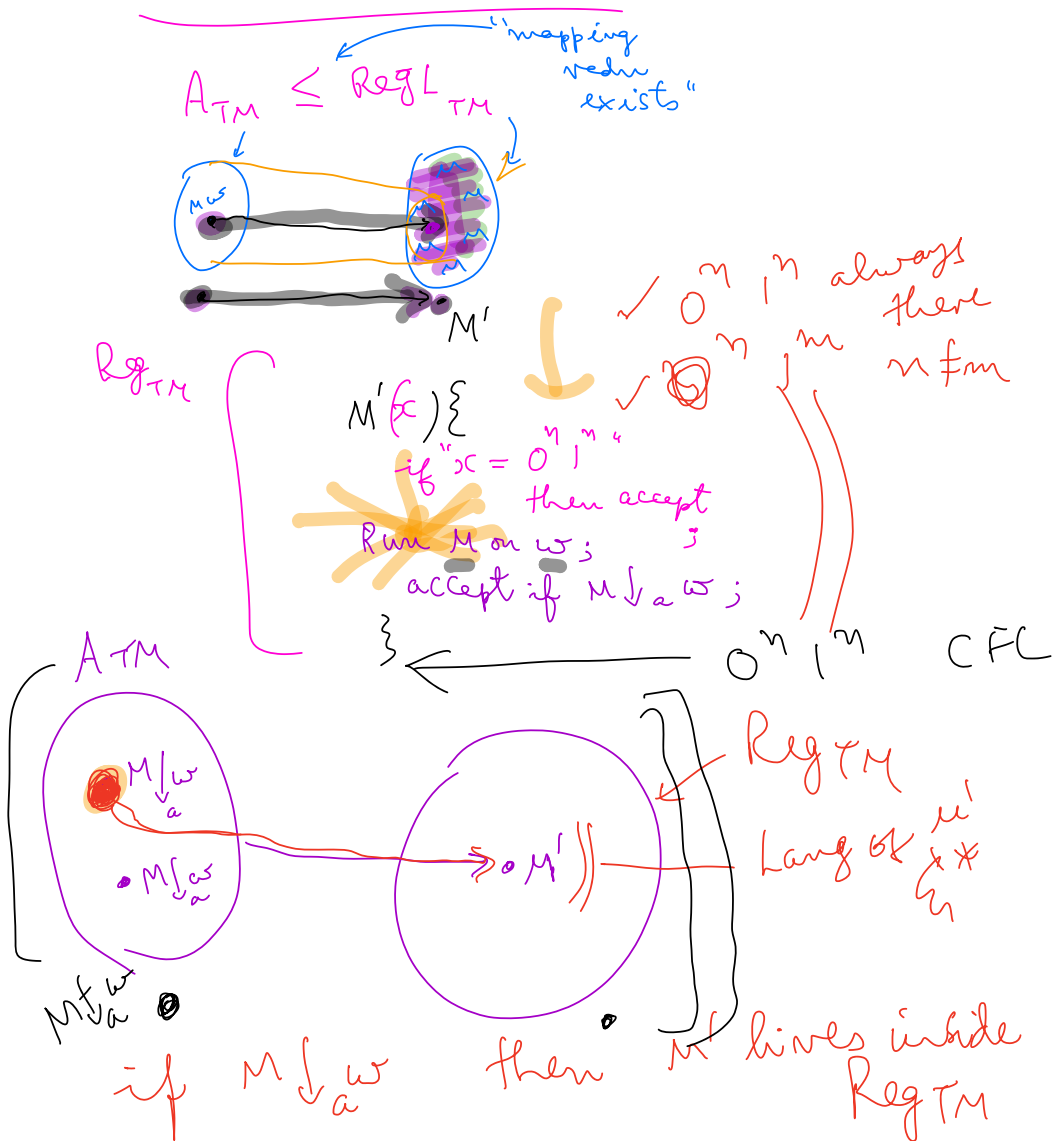 "mapping
redn
exists"
A_TM ≤ RegL_TM
M w
M
M
M
M
M
M
M'
✓ 0^n 1^n always
there
✓ 0^n 1^m n ≠ m
Reg_TM
M'(x){
if "x = 0^n 1^n"
then accept
;
Run M on w;
accept if M↓_a w;
}
0^n 1^n CFL
A_TM
M↓_a w
M↓_a w
M'
Reg_TM
Lang of M'
Σ*
M↓̸_a w
if M↓_a w then M' lives inside
Reg_TM